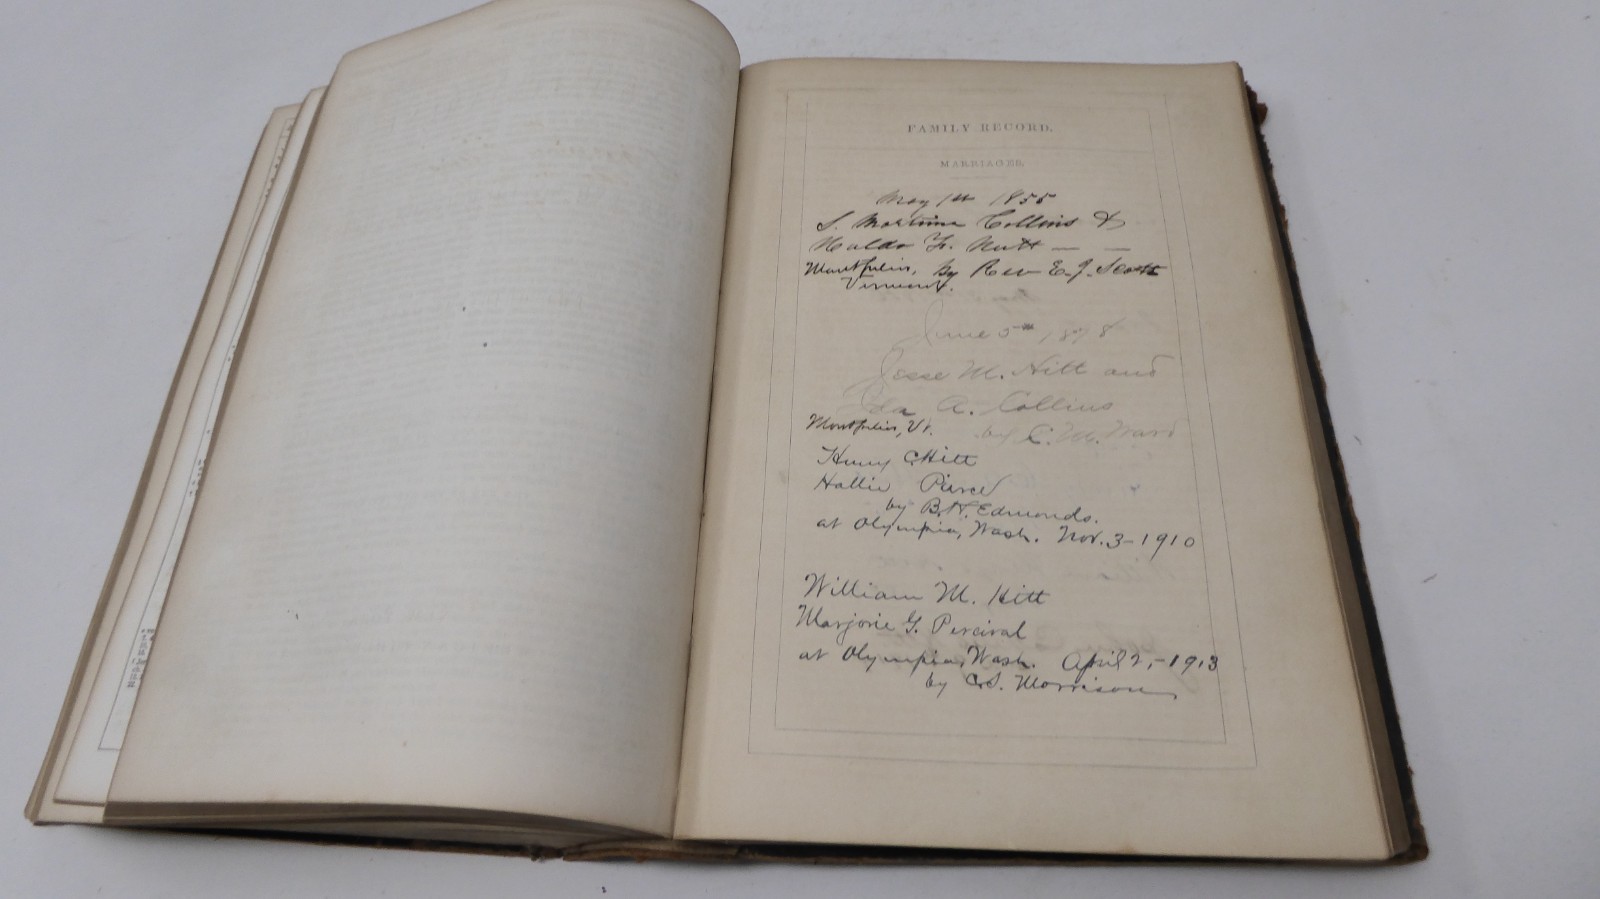 FAMILY RECORD.
MARRIAGES.
May 1st 1855
S. Mortimer Collins &
F. Nutt — —
Montpelier, by Rev E. J. Scott
Vermont.
June 5th 1878
Jesse M. Hitt and
Ida A. Collins
Montpelier, Vt. by C. M. Ward
Henry C. Hitt
Hallie Pierce
by B. H. Edmonds.
at Olympia, Wash. Nov. 3-1910
William M. Hitt
Marjorie G. Percival
at Olympia, Wash. April 2,-1913
by C. S. Morrison